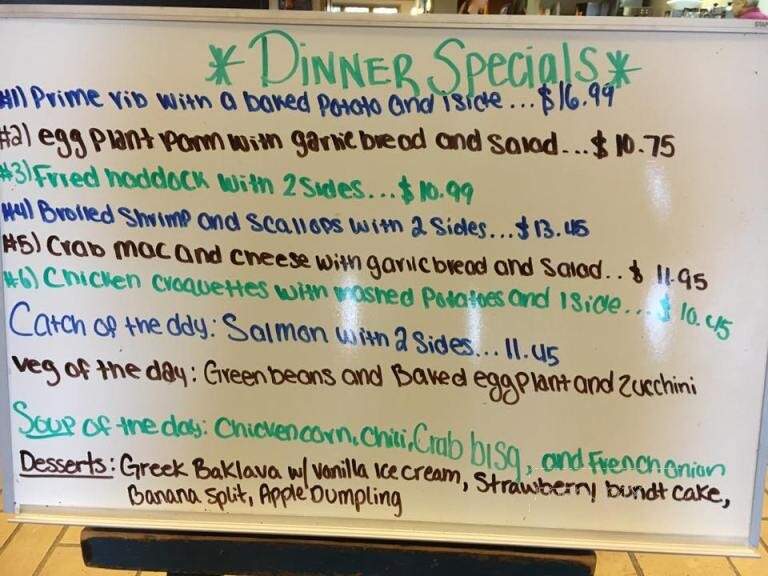 * Dinner Specials *
#1) Prime rib with a baked potato and 1side...$16.99
#2) egg plant parm with garlic bread and salad...$10.75
#3) Fried haddock with 2 sides...$10.99
#4) Broiled shrimp and scallops with 2 sides...$13.45
#5) Crab mac and cheese with garlic bread and salad..$11.95
#6) Chicken croquettes with mashed potatoes and 1side...$10.45
Catch of the day: Salmon with 2 sides...11.45
veg of the day: Green beans and Baked eggplant and zucchini
Soup of the day: Chicken corn, chili, Crab bisq, and French onion
Desserts: Greek Baklava w/ vanilla Ice cream, strawberry bundt cake,
Banana split, Apple Dumpling